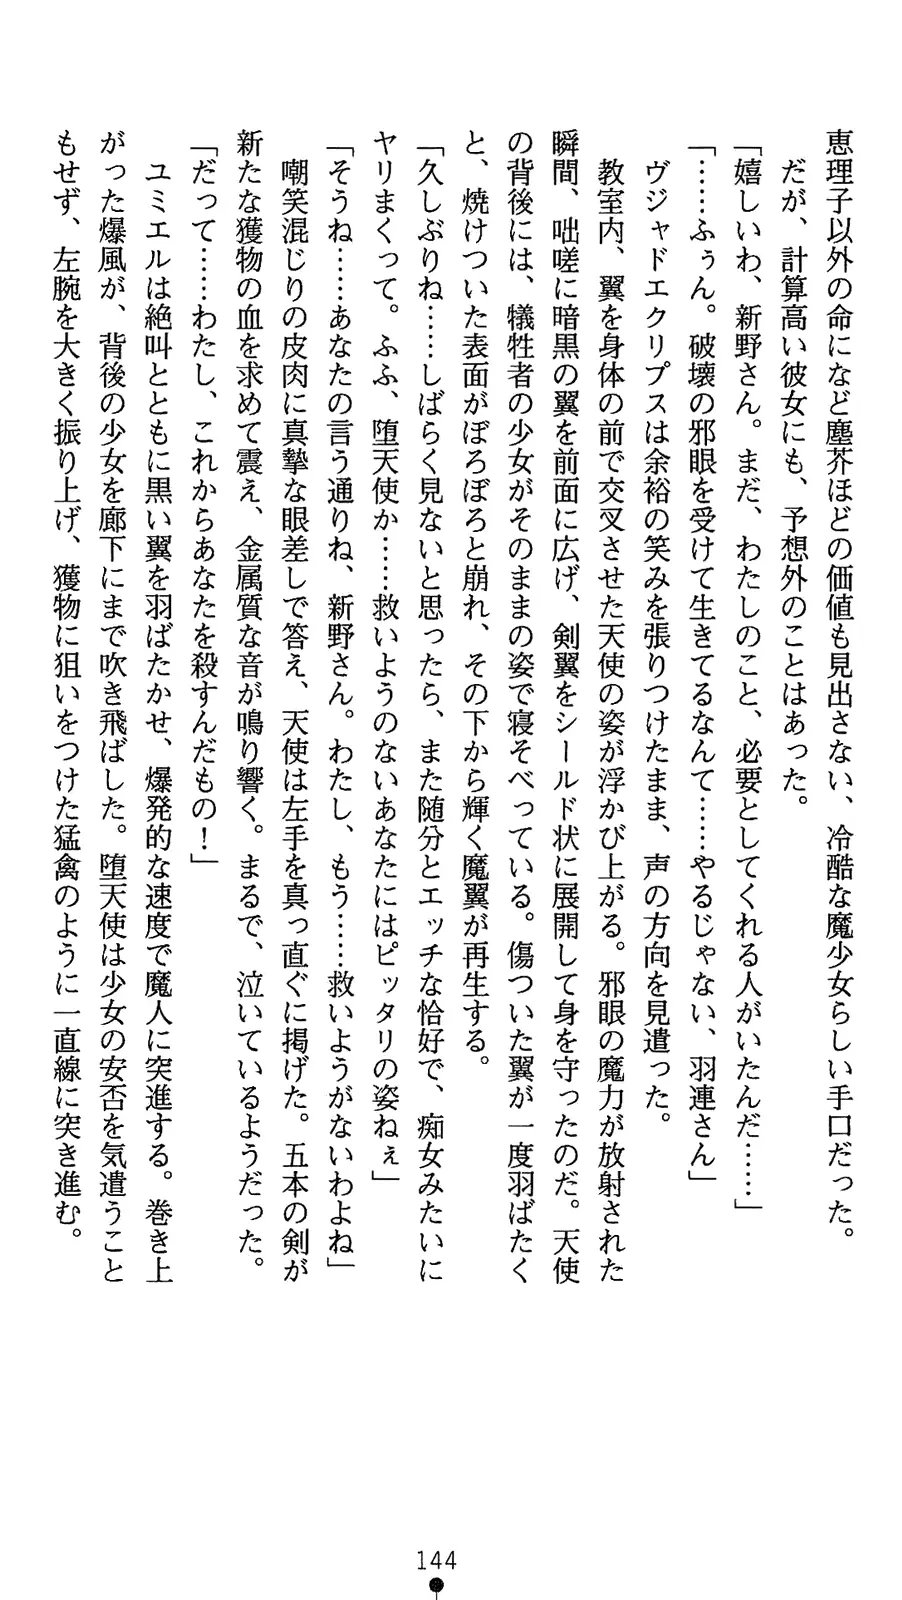 恵理子以外の命になど塵芥ほどの価値も見出さない、冷酷な魔少女らしい手口だった。
　だが、計算高い彼女にも、予想外のことはあった。
「嬉しいわ、新野さん。まだ、わたしのこと、必要としてくれる人がいたんだ……」
「……ふぅん。破壊の邪眼を受けて生きてるなんて……やるじゃない、羽連さん」
　ヴジャドエクリプスは余裕の笑みを張りつけたまま、声の方向を見遣った。
　教室内、翼を身体の前で交叉させた天使の姿が浮かび上がる。邪眼の魔力が放射された
瞬間、咄嗟に暗黒の翼を前面に広げ、剣翼をシールド状に展開して身を守ったのだ。天使
の背後には、犠牲者の少女がそのままの姿で寝そべっている。傷ついた翼が一度羽ばたく
と、焼けついた表面がぼろぼろと崩れ、その下から輝く魔翼が再生する。
「久しぶりね……しばらく見ないと思ったら、また随分とエッチな恰好で、痴女みたいに
ヤリまくって。ふふ、堕天使か……救いようのないあなたにはピッタリの姿ねぇ」
「そうね……あなたの言う通りね、新野さん。わたし、もう……救いようがないわよね」
　嘲笑混じりの皮肉に真摯な眼差しで答え、天使は左手を真っ直ぐに掲げた。五本の剣が
新たな獲物の血を求めて震え、金属質な音が鳴り響く。まるで、泣いているようだった。
「だって……わたし、これからあなたを殺すんだもの！」
　ユミエルは絶叫とともに黒い翼を羽ばたかせ、爆発的な速度で魔人に突進する。巻き上
がった爆風が、背後の少女を廊下にまで吹き飛ばした。堕天使は少女の安否を気遣うこと
もせず、左腕を大きく振り上げ、獲物に狙いをつけた猛禽のように一直線に突き進む。
144